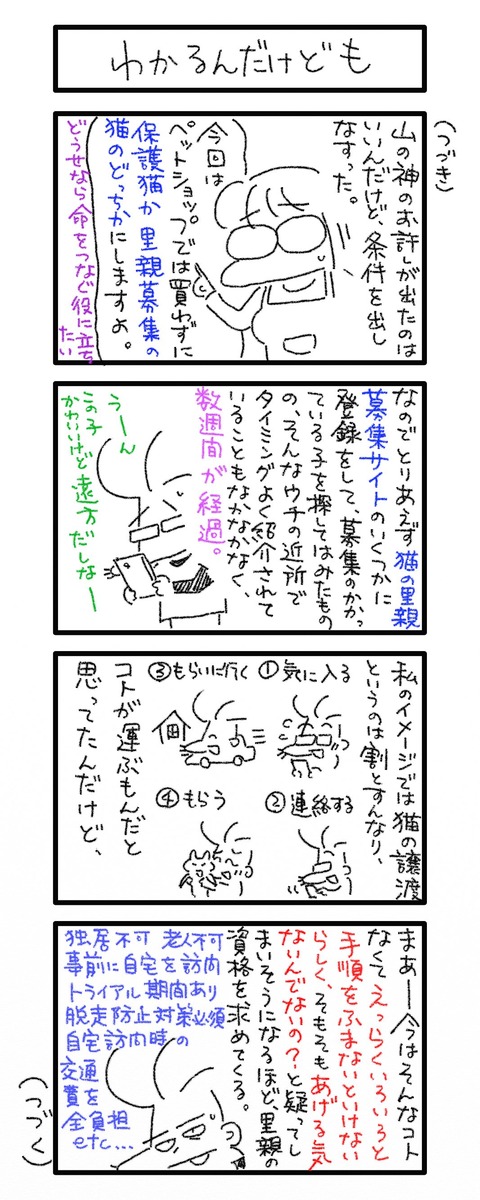 わかるんだけども
(つづき)
山の神のお許しが出たのは
いいんだけど、条件を出し
なすった。
今回は
ペットショップでは買わずに
保護猫か里親募集の
猫のどっちかにしますよ。
どうせなら命をつなぐ役に立ち
たい
なのでとりあえず猫の里親
募集サイトのいくつかに
登録をして、募集のかかっ
ている子を探してはみたもの
の、そんなウチの近所で
タイミングよく紹介されて
いることもなかなかなく、
数週間が経過。
うーん
この子
かわいけど遠方だしなー
私のイメージでは猫の譲渡
というのは割とすんなり、
①気に入る
②連絡する
③もらいに行く
④もらう
コトが運ぶもんだと
思ってたんだけど、
まあー今はそんなコト
なくてえっらくいろいろと
手順をふまないといけない
らしく、そもそもあげる気
ないんでないの?と疑ってし
まいそうになるほど、里親の
資格を求めてくる。
独居不可 老人不可
事前に自宅を訪問
トライアル期間あり
脱走防止対策必須
自宅訪問時の
交通
費を
全負担
etc...
(つづく)